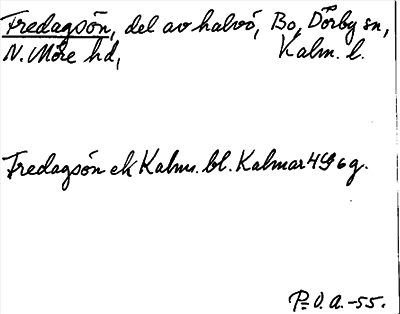 Fredagsön, del av halvö, Bo, Dörby sn,
N. Möre hd, Kalm. l.
Fredagsön ek Kalms. bl. Kalmar 4G6g.
P. O. A. -55.